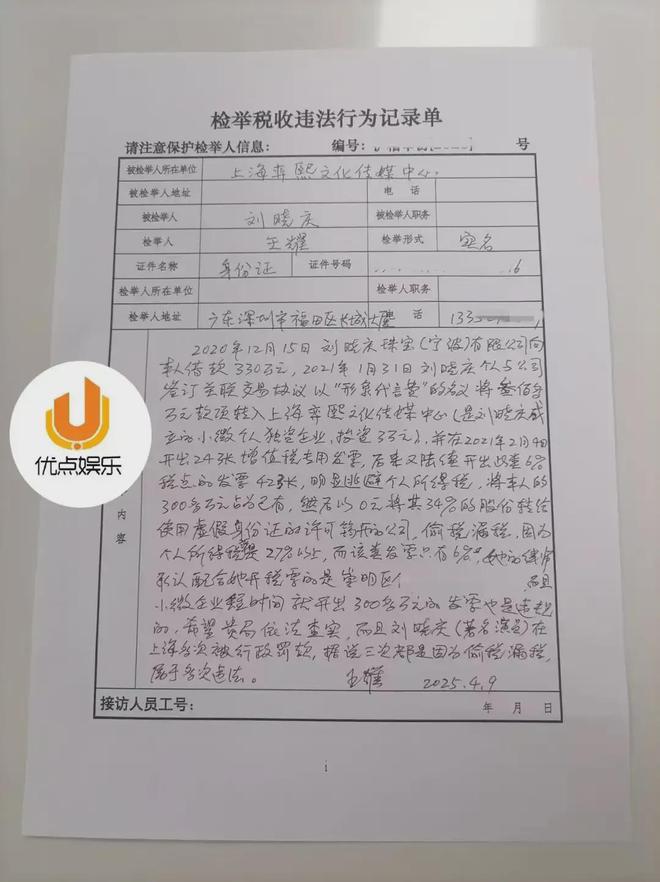 检举税收违法行为记录单
请注意保护检举人信息： 编号： 号
被检举人所在单位 上海弈熙文化传媒中心。
被检举人地址 电话
被检举人 刘晓庆 被检举人职务
检举人 王耀 检举形式 实名
证件名称 身份证 证件号码 16
检举人所在单位 检举人职务
检举人地址 广东深圳市福田区长城大厦 话 133
2020年12月15日刘晓庆珠宝(宁波)有限公司向
本人借款330万元，2021年1月31日刘晓庆个人与公司
签订关联交易协议以“形象代言费”的名义将叁佰多
万元款项转入上海弈熙文化传媒中心(是刘晓庆成
立的小微个人独资企业，投资3万元)，并在2021年2月4日
开出24张增值税专用发票，后来又陆续开出此类6%
税点的发票42张，明显逃避个人所得税，将本人的
300多万元占为己有，然后以0元将其34%的股份转给
使用虚假身份证的许可转开的公司，偷税漏税，因为
个人所得税要27%以上，而该普发票只有6%，她的律师
承认配合她开税票的是崇明区 而且
小微企业短时间就开出300多万元的发票也是违规
的，希望贵局依法查实，而且刘晓庆(著名演员)在
上海多次被行政罚款，据说三次都是因为偷税漏税，
属于多次违法。 王耀 2025.4.9
内容
接访人员工号： 年 月 日
1
优点娱乐